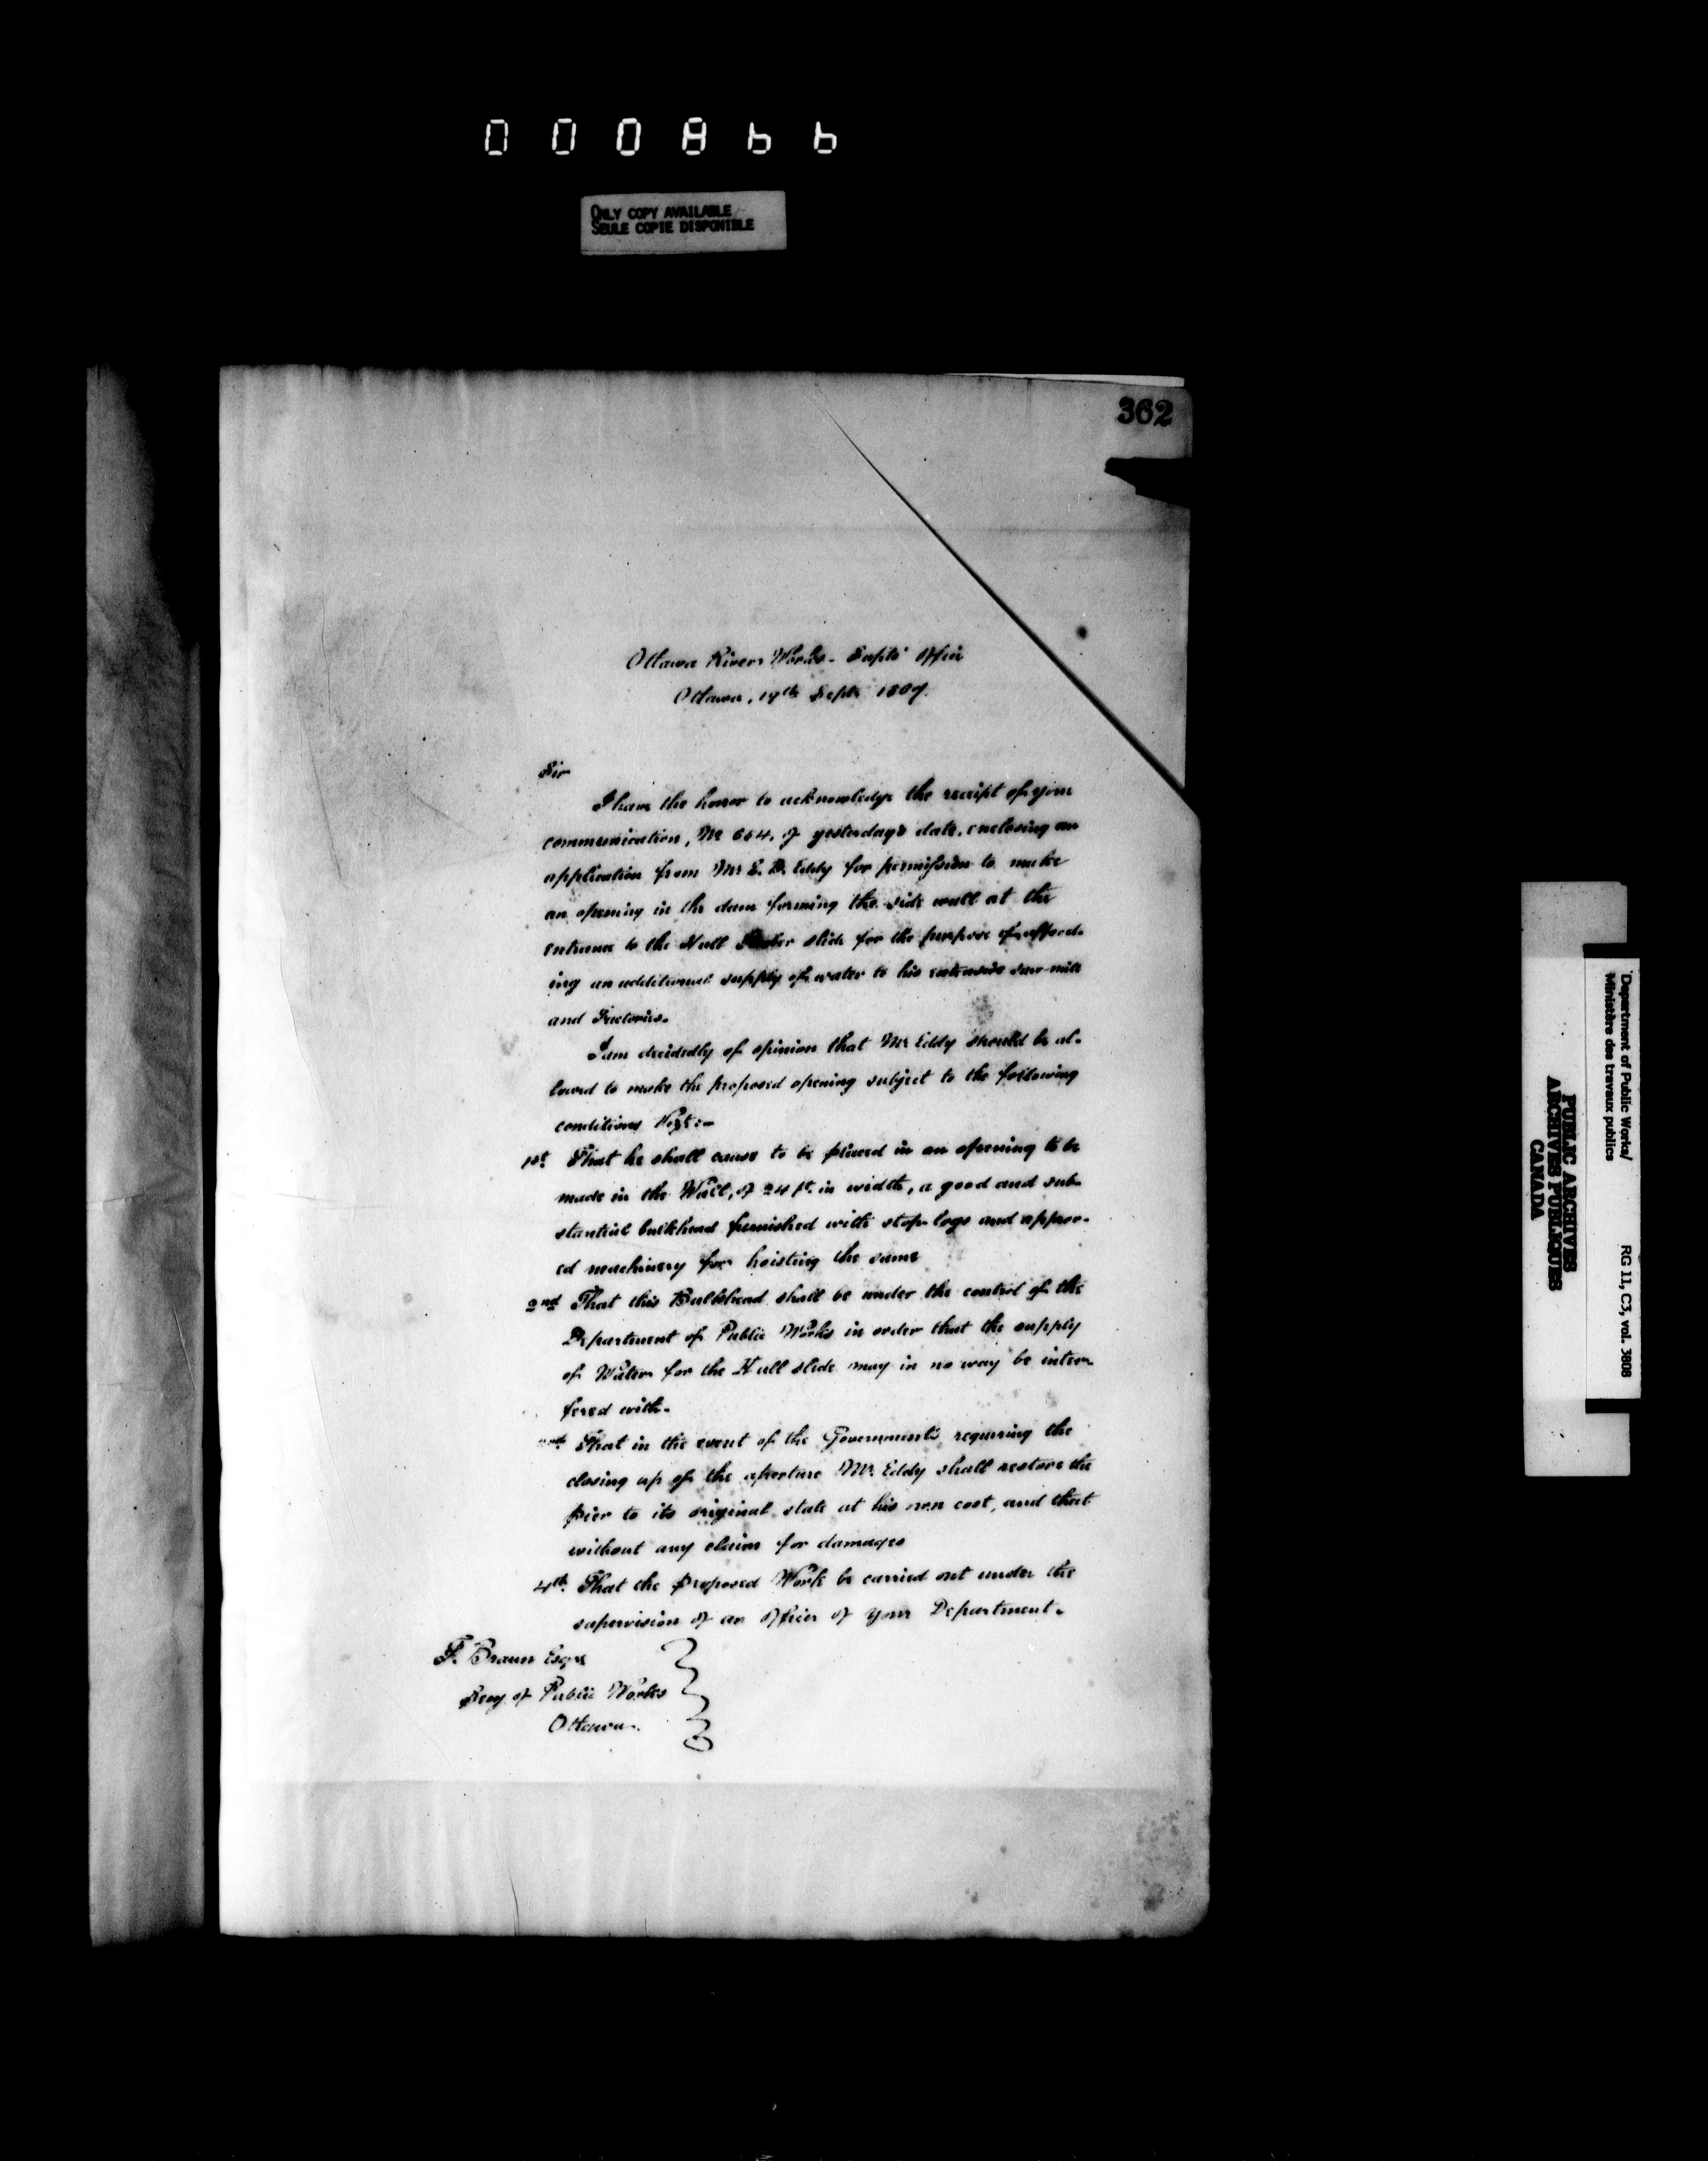 0 0 0 8 6 6
ONLY COPY AVAILABLE
SEULE COPIE DISPONIBLE
362
Ottawa River Works - Supts' Office
Ottawa, 17th Septr 1867.
Sir
I have the honor to acknowledge the receipt of your
communication, No 664, of yesterday's date, enclosing an
application from Mr E. B. Eddy for permission to make
an opening in the dam forming the side wall at the
entrance to the Hull slide for the purpose of afford-
ing an additional supply of water to his extensive saw-mills
and Factories.
I am decidedly of opinion that Mr Eddy should be al-
lowed to make the proposed opening subject to the following
conditions Vizt:-
1st That he shall cause to be placed in an opening to be
made in the Wall, of 24 ft. in width, a good and sub-
stantial bulkhead furnished with stop logs and approv-
ed machinery for hoisting the same
2nd That this Bulkhead shall be under the control of the
Department of Public Works in order that the supply
of Water for the Hull slide may in no way be inter-
fered with.
That in the event of the Governments requiring the
closing up of the aperture Mr. Eddy shall restore the
pier to its original state at his own cost, and that
without any claim for damages
4th. That the proposed Work be carried out under the
supervision of an officer of your Department.
F. Braun Esqre
Secy of Public Works
Ottawa.
Department of Public Works/
Ministère des travaux publics
RG 11, C3, vol. 3808
PUBLIC ARCHIVES
ARCHIVES PUBLIQUES
CANADA